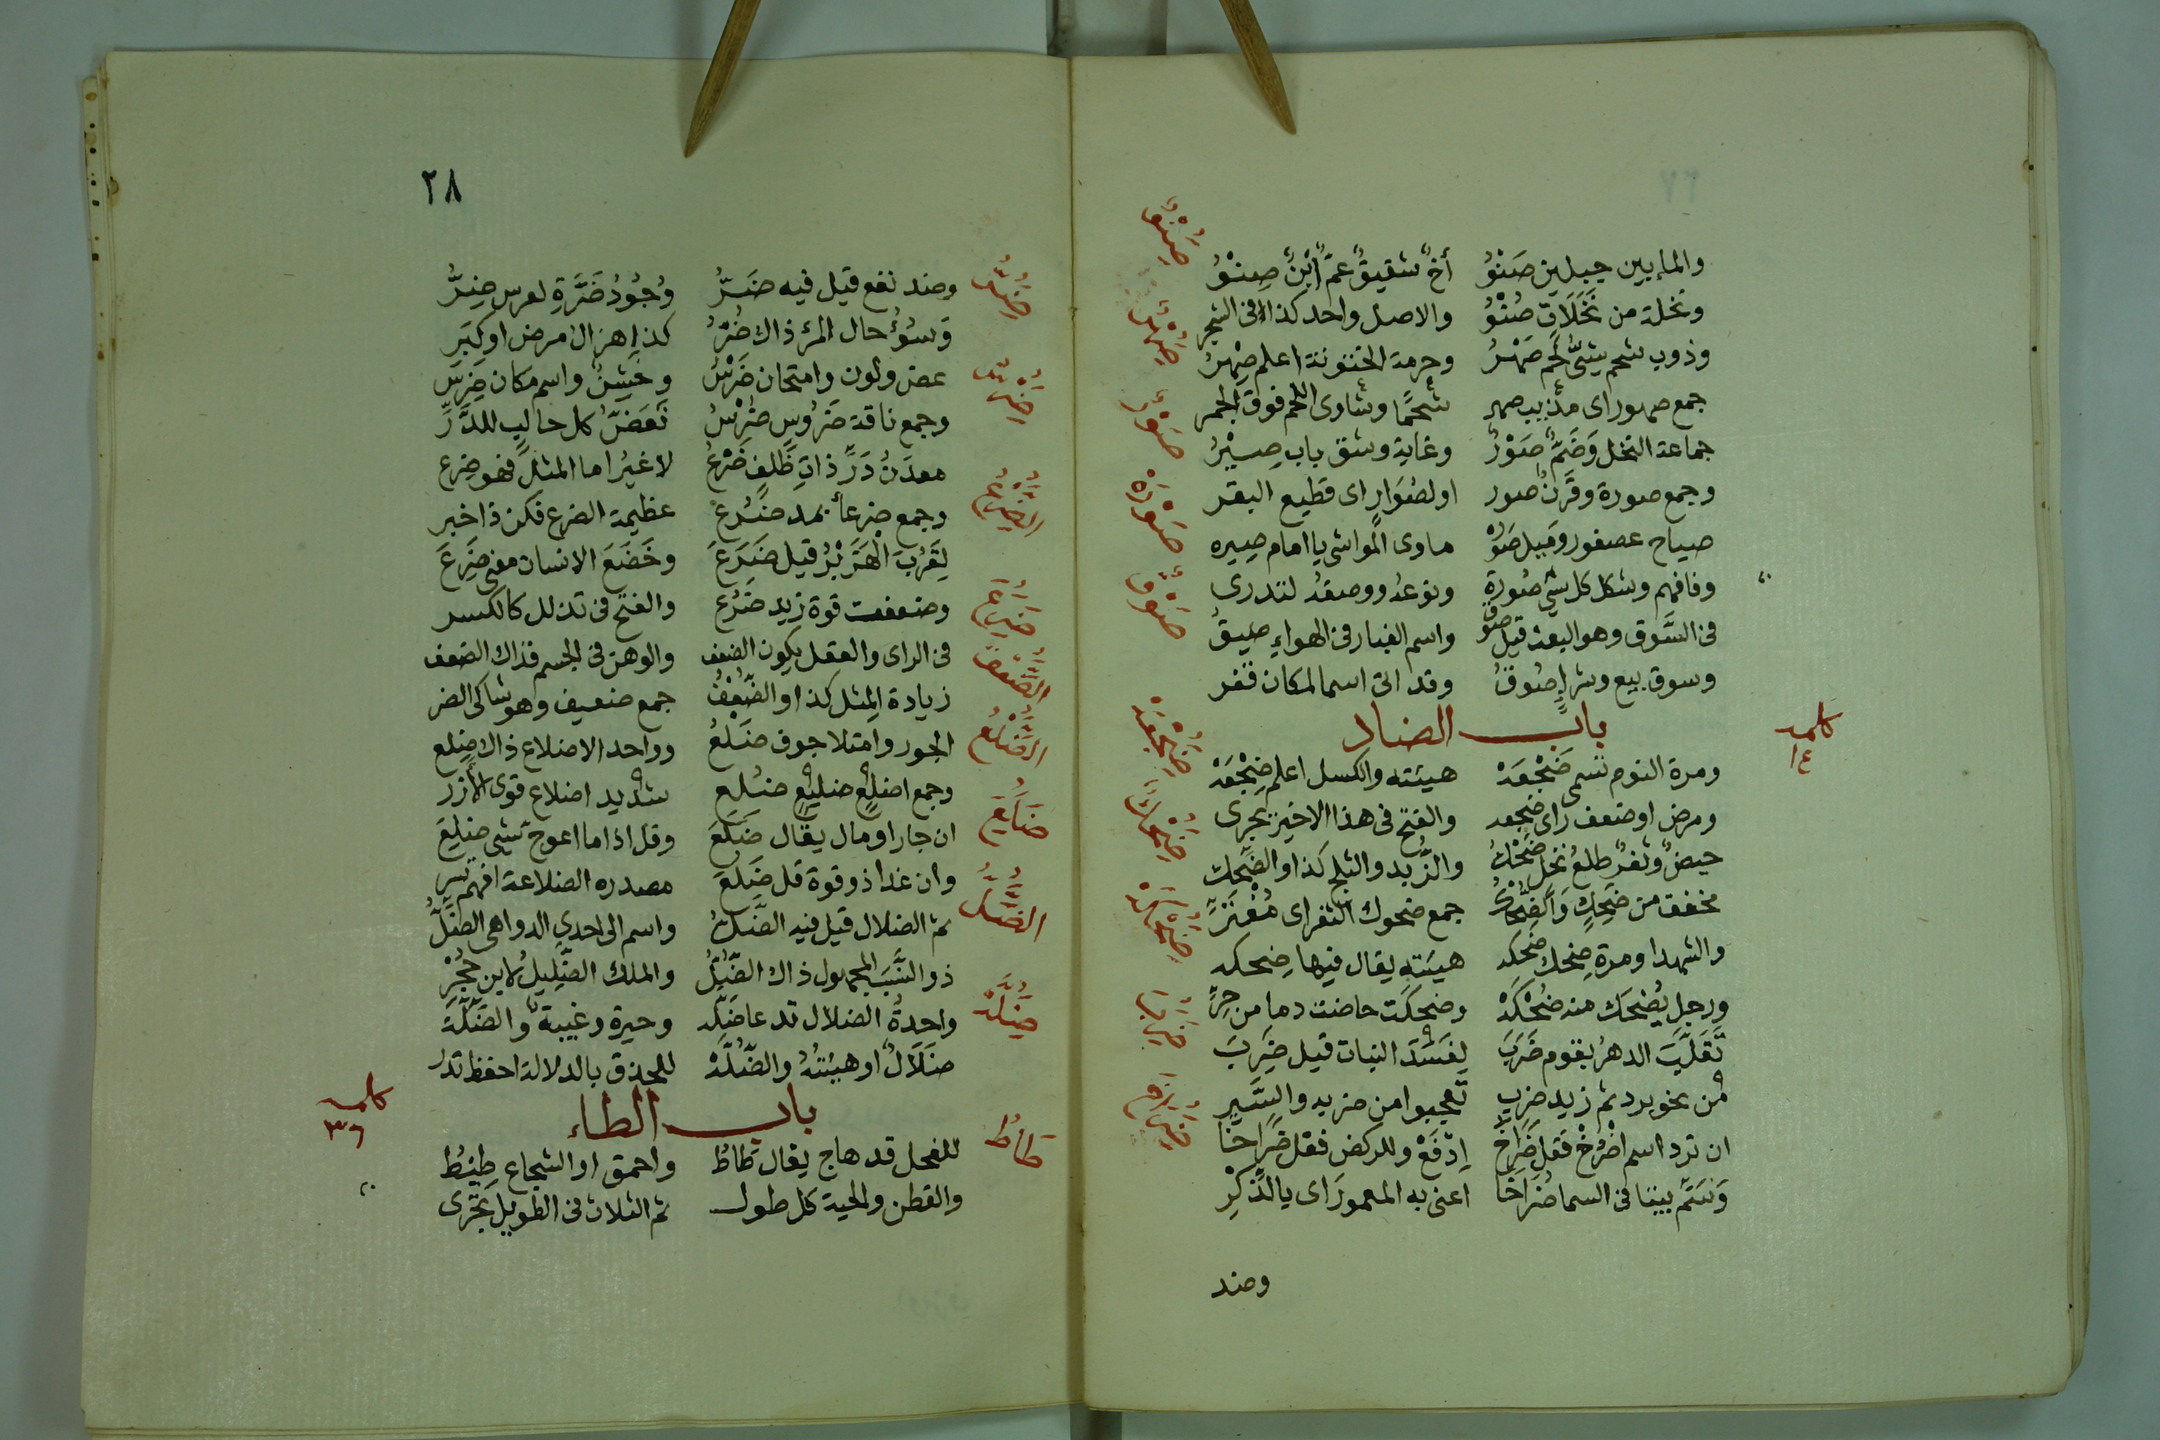 والما بين جبلين صَنْوُ أخٌ شقيقٌ عمٌّ ابْنٌ صِنْوُ
ونخلة من نَخَلَاتٍ صُنْوُ والاصل واحد كذا في الشجر
وذوب شحم شيّ لحم صَهْرُ وحرمة الختونة اعلم صِهْرُ
جمع صهور اى مذيب صهر شحمًا وشاوى اللحم فوق الجمر
جماعة النخل وَضَمٌّ صَوْرُ وغاية وشق باب صِيْرُ
وجمع صورة وقَرْنٌ صور او لصُوَارٍ اى قطيع البقر
صياح عصفور ومَيل صَوْرَه ماوى المواشى يا امام صِيره
وفافهم وشكل كل شئ صُورة ونوعُه ووصفُه لتدرى
فى السَّوق وهو البعث قيل صَوْق واسم الغبار فى الهواءِ صِيقُ
وسوق بيع وشراءٍ صُوقُ وقد اتى اسما لمكان قفر
باب الضاد
كلمه
١٤
ومرة النوم تسمى ضَجْعَهْ هيئته والكسل اعلم ضِجْعَهْ
ومرض او ضعف راى ضُجعه والفتح فى هذا الاخير يجرى
حيضٌ وثغرٌ طلعُ نخل ضَحْكُ والزُّبد والثلج كذا والضِّحك
مخفف من ضَحِكٍ والضُّحْكُ جمع ضحوك الثغر اى مُفْتَرِّ
والشهد او مرة ضحك ضَحكه هيئته يقال فيها ضِحكه
ورجل يُضحَك منه ضُحْكَهْ وضحكت حاضت دما من حِرِّ
تَقَلَّبَ الدهرُ بقوم ضَرَبَ لِفَسَدَ النبات قيل ضَرِبَ
من نحو برد ثم زيد ضَرُب تعجبوا من ضربه والسَّيرِ
ان ترد اسم اضْرُخْ فقل ضَرَاخِ اِدْفَعْ وللركض فقل ضِرَاخَا
وَسَمِّ بيتا فى السما ضُرَاخَا اعنى به المعمورَ اى يا الذِّكْرِ
وضد
صِنْوٌ
صِهْرٌ
صَوْرٌ
صَوْرَهْ
صَوْقٌ
ضَجْعَهْ
ضَحْكٌ
ضَحْكَهْ
ضَرَبَ
ضَرَاخِ
٢٨
وضد نفع قيل فيه ضَرُّ وُجُودُ ضَرَّةٍ لعرس ضِرُّ
وَسُؤُ حال المرٔ ذاك ضُرُّ كذا هزال مرض او كِبَرِ
عض ولون وامتحان ضَرْسُ وخَشِنٌ واسم مكان ضِرسُ
وجمع ناقة ضَرُوسٍ ضُرْسُ تَعَضّ كل حالب للدَّرِّ
معدَنُ دَرِّ ذاتِ ظِلفٍ ضَرْعُ لا غيرُ اما المثل فهو ضِرع
وجمع ضرعأ بمد ضُرْعُ عظيمة الضرع فكن ذا خبر
لِقَرُبَ الهَزَبْرُ قيل ضَرَعَ وخَضَعَ الانسان معنى ضَرِعَ
وضعفت قوة زيد ضَرُع والفتح فى تذلل كالكسر
فى الراى والعقل يكون الضعف والوهن فى الجسم فذاك الضعف
زيادة المثل كذا والضُّعْفُ جمع ضعيف وهو شاكى الضر
الجور وامتلا جوف ضَلْعُ وواحد الاضلاع ذاك ضِلع
وجمع اضلعٍ ضليعٍ ضُلع شديد اضلاع قوى الأزر
ان جار او مال يقال ضَلَعَ وقل اذا ما اعوج شئ ضلِعَ
وان غدا ذو قوة قل ضَلُعَ مصدره الضلاعة افهم تسر
ثم الضلال قيل فيه الضَّلُّ واسم الى احدى الدواهى الضِّلُّ
ذو النَّسَب المجهول ذاك الضُّلُّ والملك الضِّلِيلُ لابن حُجْرِ
واحدةُ الضلال تدعا ضَلَّه وحيرة وغيبة والضِّلَّة
ضَلَالٌ او هيئتُهُ والضُّلَّهْ للحذق بالدلالة احفظ تدر
باب الطاء
كلمه
٣٦
للفحل قد هاج يقال طَاطُ واحمق او الشجاع طِيْطُ
والقطن والحية كل طول ثم الثلاث فى الطويل تجرى
ضَرٌّ
ضَرْسٌ
الضَّرْعُ
ضَرَعَ
الضَّعْفُ
الضَّلْعُ
ضَلَعَ
الضَّلُّ
ضَلَّهْ
طَاطُ